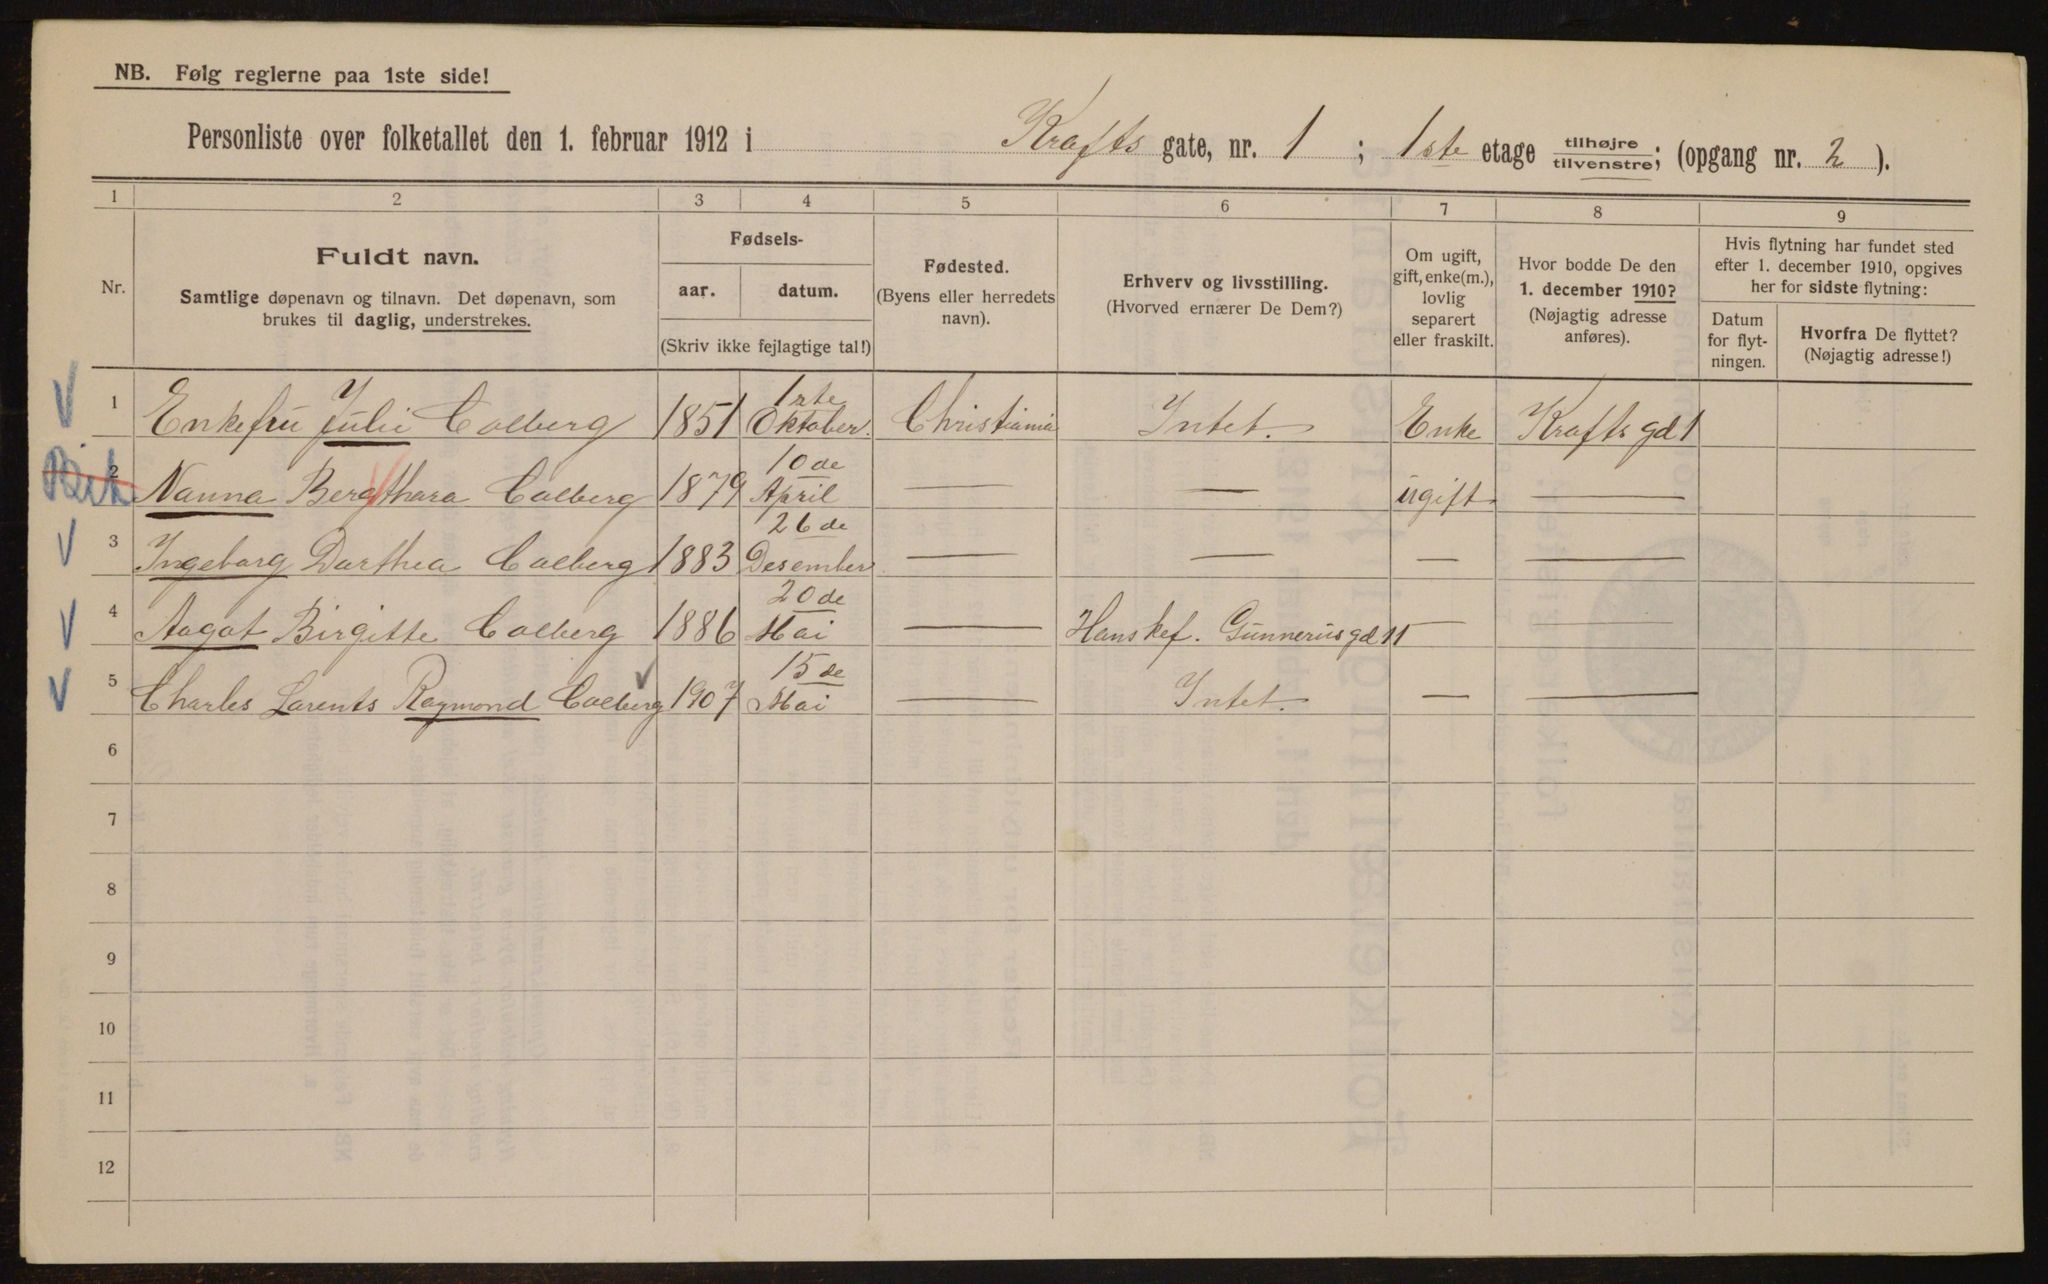 NB. Følg reglerne paa 1ste side!
Personliste over folketallet den 1. februar 1912 i Krafts gate, nr. 1 ; 1ste etage tilhøjre tilvenstre; (opgang nr. 2 ).
1 2 3 4 5 6 7 8 9
Nr.
Fuldt navn.
Samtlige døpenavn og tilnavn. Det døpenavn, som
brukes til daglig, understrekes.
Fødsels-
aar. datum.
(Skriv ikke fejlagtige tal!)
Fødested.
(Byens eller herredets
navn).
Erhverv og livsstilling.
(Hvorved ernærer De Dem?)
Om ugift,
gift, enke(m.),
lovlig
separert
eller fraskilt.
Hvor bodde De den
1. december 1910?
(Nøjagtig adresse
anføres).
Hvis flytning har fundet sted
efter 1. december 1910, opgives
her for sidste flytning:
Datum
for flyt-
ningen.
Hvorfra De flyttet?
(Nøjagtig adresse!)
1 Enkefru Julie Colberg 1851 1ste Oktober. Christiania Intet. Enke Krafts gd 1
2 Nanna Bergthara Colberg 1879 10de April — — ugift —
3 Ingeborg Dorthea Colberg 1883 26de Desember — — — —
4 Aagot Birgitte Colberg 1886 20de Mai — Hanskef. Gunnerusgd 11 — —
5 Charles Lorents Raymond Colberg 1907 15de Mai — Intet. — —
6
7
8
9
10
11
12